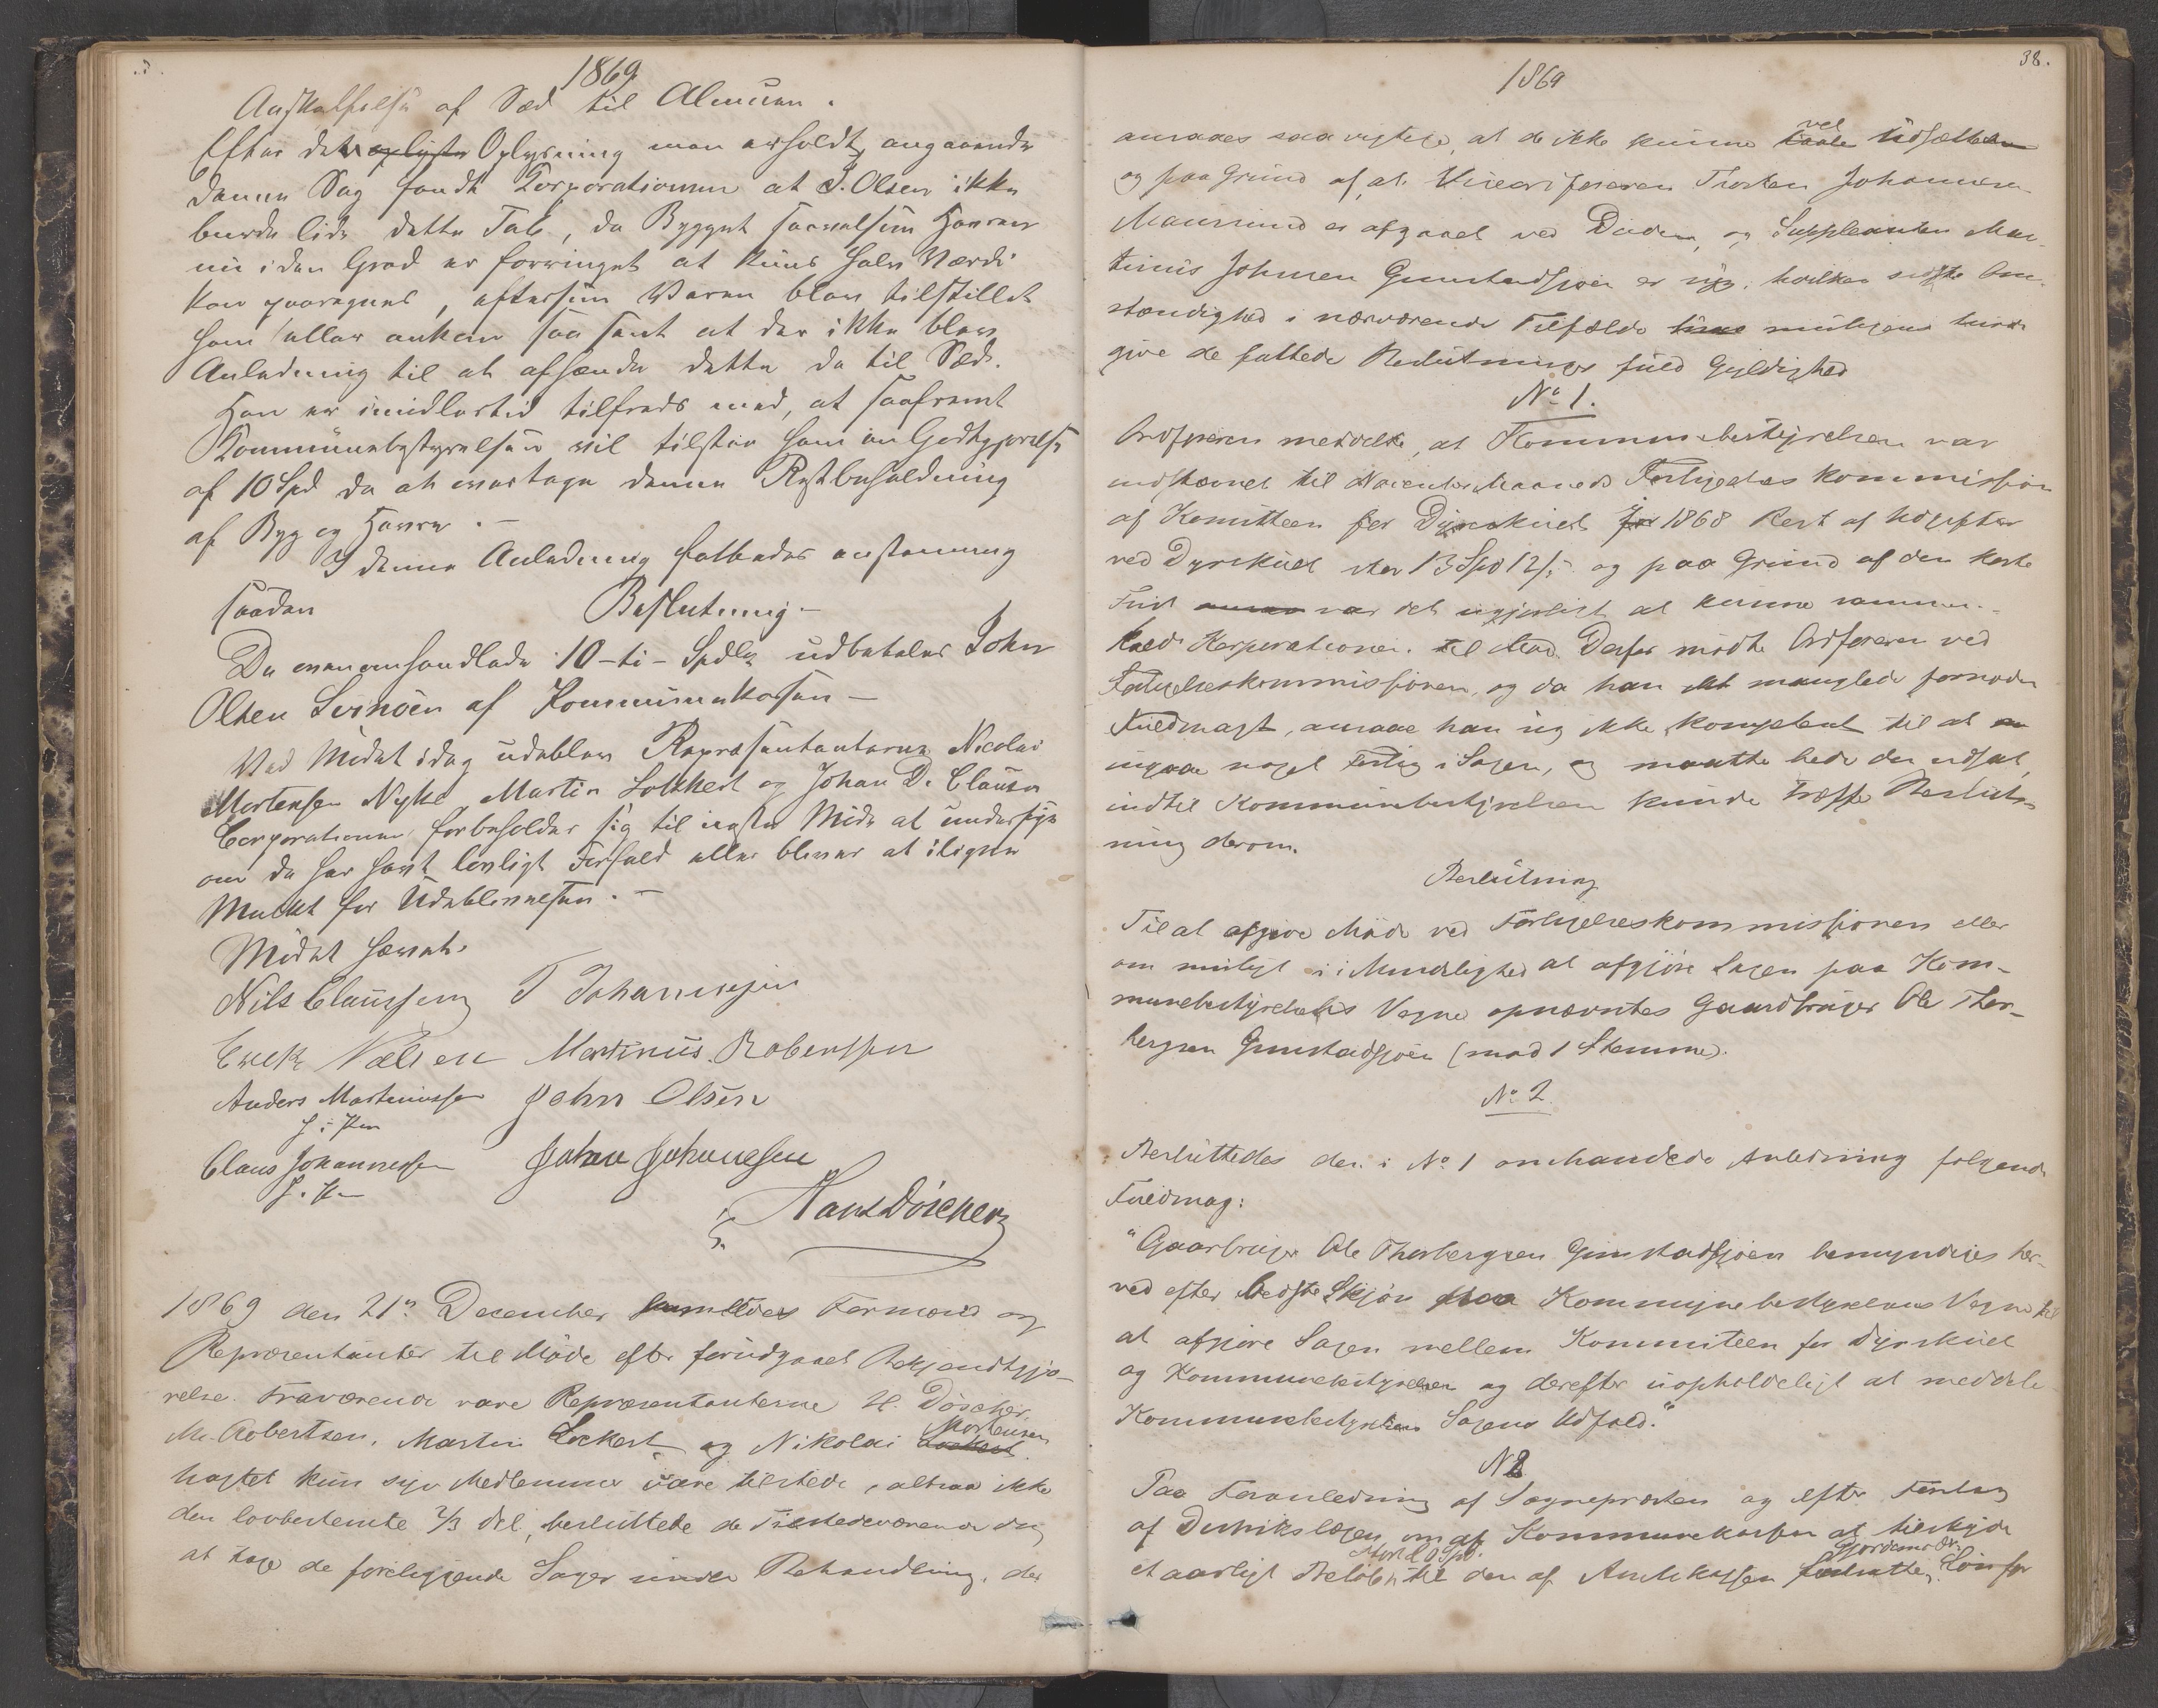 1869
Anskaffelse af Sæd til Almuen.
Efter den oplyste Oplysning man erholdt, angaaende
denne Sag fandt Corporationen at J. Olsen ikke
burde lide dette Tab, da Bygget saavelsom Havren
nu i den Grad er forringet at kuns halv Værdi
kan paaregnes, eftersom Varen blev tilstillet
ham eller anken saa sent at der ikke blev
Anledning til at afhænde dette da til Sæd.
Han er imidlertid tilfreds med, at saafremt
Kommunebestyrelsen vil tilstaa ham en Godtgjørelse
af 10 Spd da at modtage denne Restbeholdning
af Byg og Havre.-
I denne Anledning fattedes enstemmig
saadan Beslutning.-
De ovenomhandlede 10-ti-Spdlr udbetales John
Olsen Svinöen af Kommunekassen-
Ved Mödet idag udeblev Repræsentanterne Nicolai
Mortensen Nyke, Martin Lokkert og Johan D. Clausen
Corporationen forbeholder sig til neste Möde at undersöge
om de har havt lovligt Forfald eller bliver at ilignes
Mulkt for Udeblivelsen.-
Mödet hævet.
Nils Claussen T Johannesen
Erek Nælsen Martinus Robertssen
Anders Martinussen John Olsen
f. i Pen
Claus Johannessen Johan Johanesen
f. Pen
Hans Döscher
1869 den 21de December samledes Formænd og
Repræsentanter til Möde efter forudgaaet Bekjendtgjö-
relse. Fraværende vare Repræsentanterne H. Döscher,
M. Robertsen, Martin Lockert og Nikolai Lockert Mortensen
hvortel kun syv Medlemmer vare tilstede, altsaa ikke
den lovbestemte 2/3 del, besluttede de Tilstedeværende dog
at tage de foreliggende Sager under Behandling, der
38.
1869
ansaaes saa vigtige, at de ikke kunne taale vel Udsættelse
og paa Grund af, at Viceordföreren Thorsten Johannesen
Maurnund er afgaaet ved Döden, og Suppleanten Mar-
tinus Johnsen Gunstadsjöen er syg, hvilken sidste Om-
stændighed i nærværende Tilfælde muligens turde
give de fattede Beslutninger fuld Gyldighed
No 1.
Ordföreren meddelte, at Kommunebestyrelsen var
indstævnet til November Maaneds Forligelses kommission
af Komitteen for Dyrskuet for 1868 Rest af Udgifter
ved Dyrskuet stor 13 Spd 12 ß. og paa Grund af den korte
Frist var det ugjörligt at kunne sammen-
kalde Korporationen til Möde. Derfor mödte Ordföreren ved
Forligelseskommissionen, og da han manglede fornöden
Fuldmagt, ansaae han sig ikke kompetent til at
ingaae noget Forlig i Sagen, og maatte bede den udsat,
indtil Kommunebestyrelsen kunde træffe Beslut-
ning derom.
Beslutning
Til at afgive Möde ved Forligelseskommissionen eller
om muligt i Mindelighed at afgjöre Sagen paa Kom-
munebestyrelsens Vegne opnævntes Gaardbruger Ole Thor-
bergsen Gunstadsjöen (mod 1 Stemme).
No 2.
Besluttedes den i No 1 omhandlede Anledning fölgende
Fuldmagt:
"Gaarbruger Ole Thorbergsen Gunstadsjöen bemyndiges her-
ved efter bedste Skjön paa Kommunebestyrelsens Vegne til
at afgjöre Sagen mellem Kommiteen for Dyrskuet
og Kommunebestyrelsen og derefter uopholdeligt at meddele
Kommunebestyrelsen Sagens Udfald."
N 3
Paa Foranledning af Sognepræsten og efter Forslag
af Distriktslægen om af Kommunekassen at tilskyde
et aarligt Belöb stort 20 Spd. til den af Amtskassen Gjordemödr. Lön for